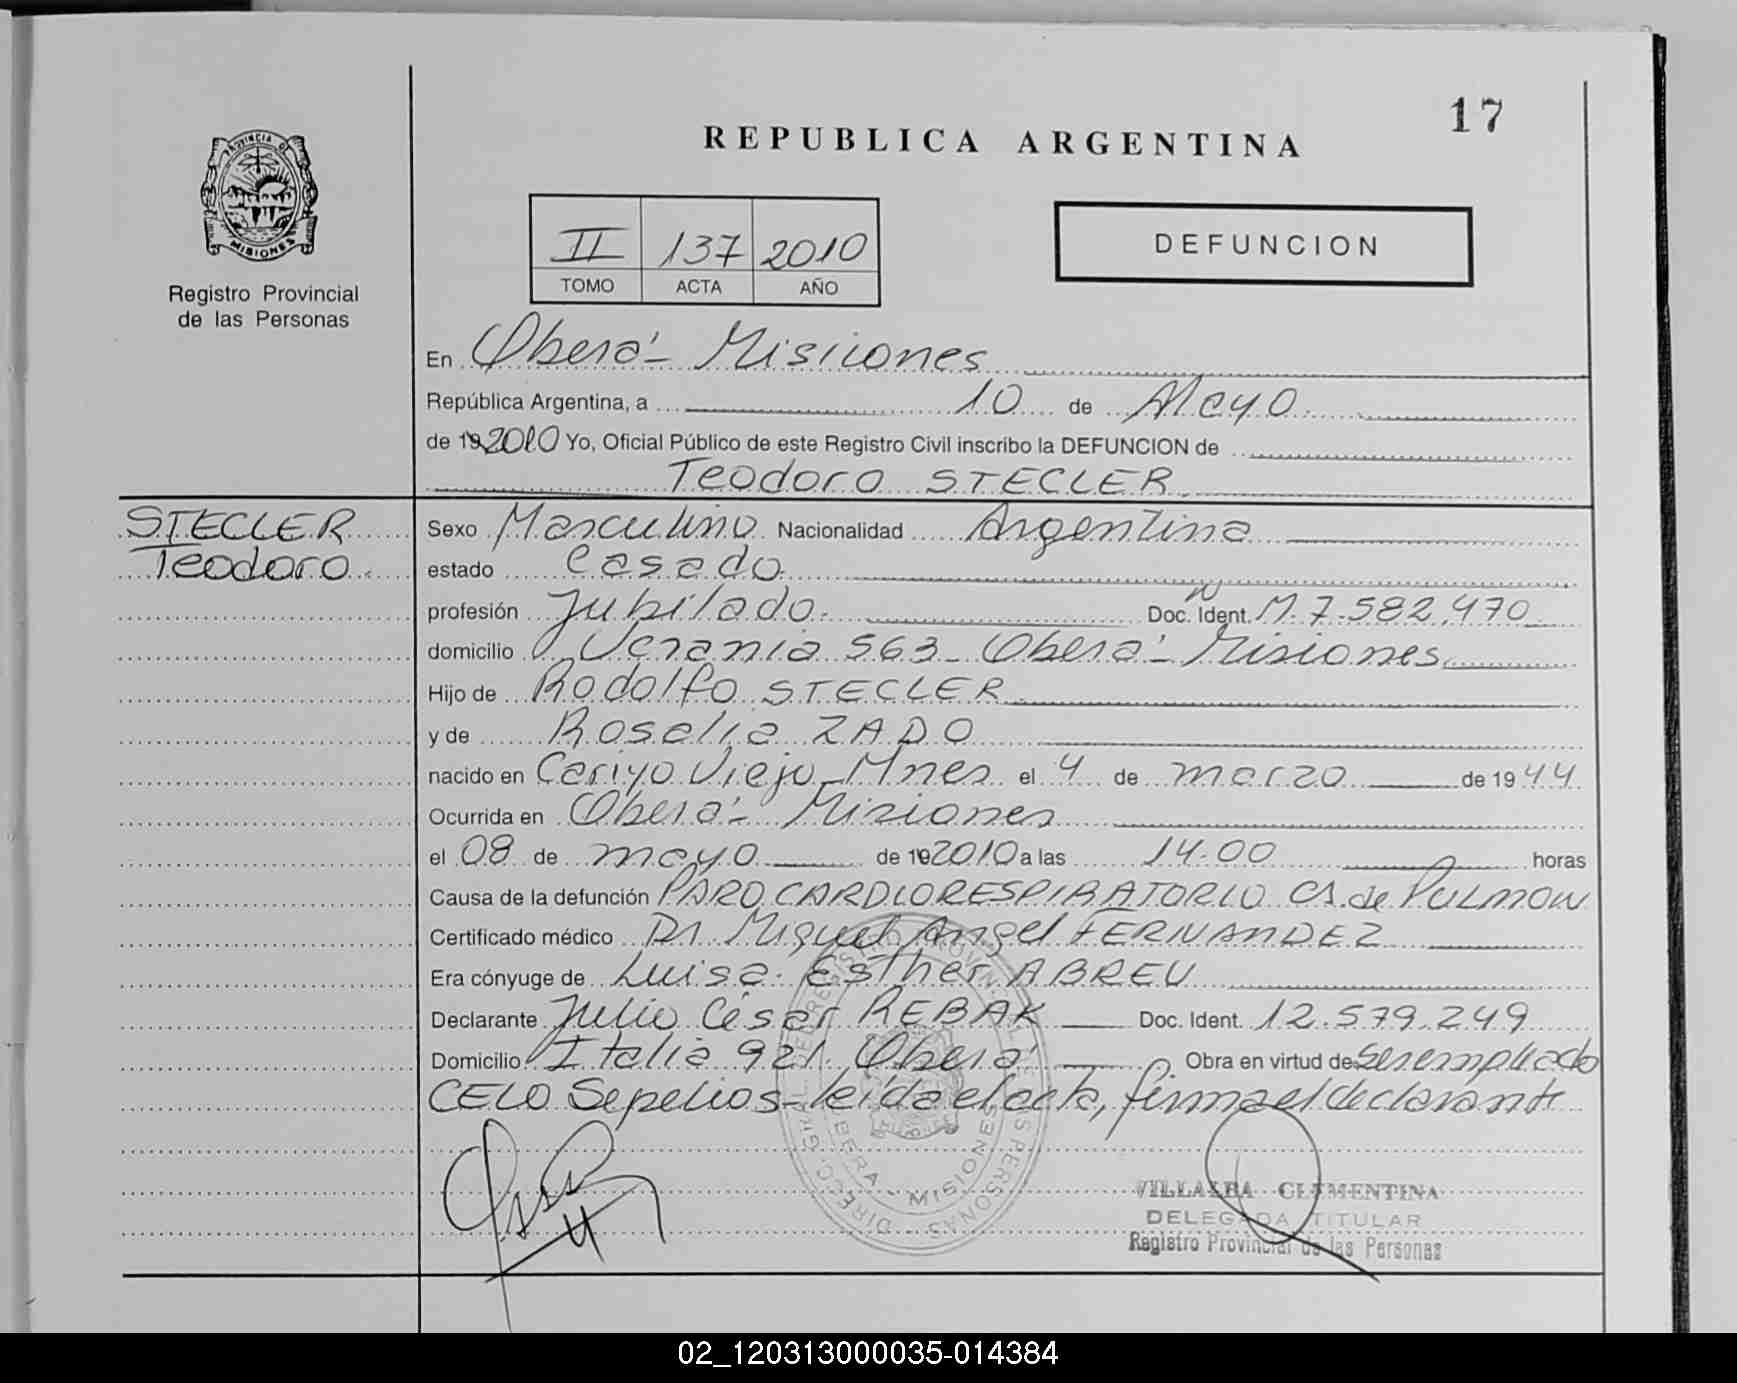 17
REPUBLICA ARGENTINA
PROVINCIA DE
MISIONES
Registro Provincial
de las Personas
II 137 2010
TOMO ACTA AÑO
DEFUNCION
En Oberá - Misiones
República Argentina, a 10 de Mayo
de 19 2010 Yo, Oficial Público de este Registro Civil inscribo la DEFUNCION de
Teodoro STECLER
STECLER
Teodoro
Sexo Masculino Nacionalidad Argentina
estado Casado
profesión Jubilado. Doc. Ident. M. 7.582.470
domicilio Ucrania 563 - Oberá - Misiones
Hijo de Rodolfo STECLER
y de Roselia ZADO
nacido en Viejo - Mnes el 4 de marzo de 1944
Ocurrida en Oberá - Misiones
el 08 de mayo de 19 2010 a las 14.00 horas
Causa de la defunción PARO CARDIORESPIRATORIO CA. de PULMON
Certificado médico Dr. Miguel Angel FERNANDEZ
Era cónyuge de Luisa Esther ABREU
Declarante Julio César REBAK Doc. Ident. 12.579.249
Domicilio Italia 921 Oberá Obra en virtud de ser empleado
CELO Sepelios - leída el acta, firma el declarante
VILLALBA CLEMENTINA
DELEGADA TITULAR
Registro Provincial de las Personas
02_120313000035-014384